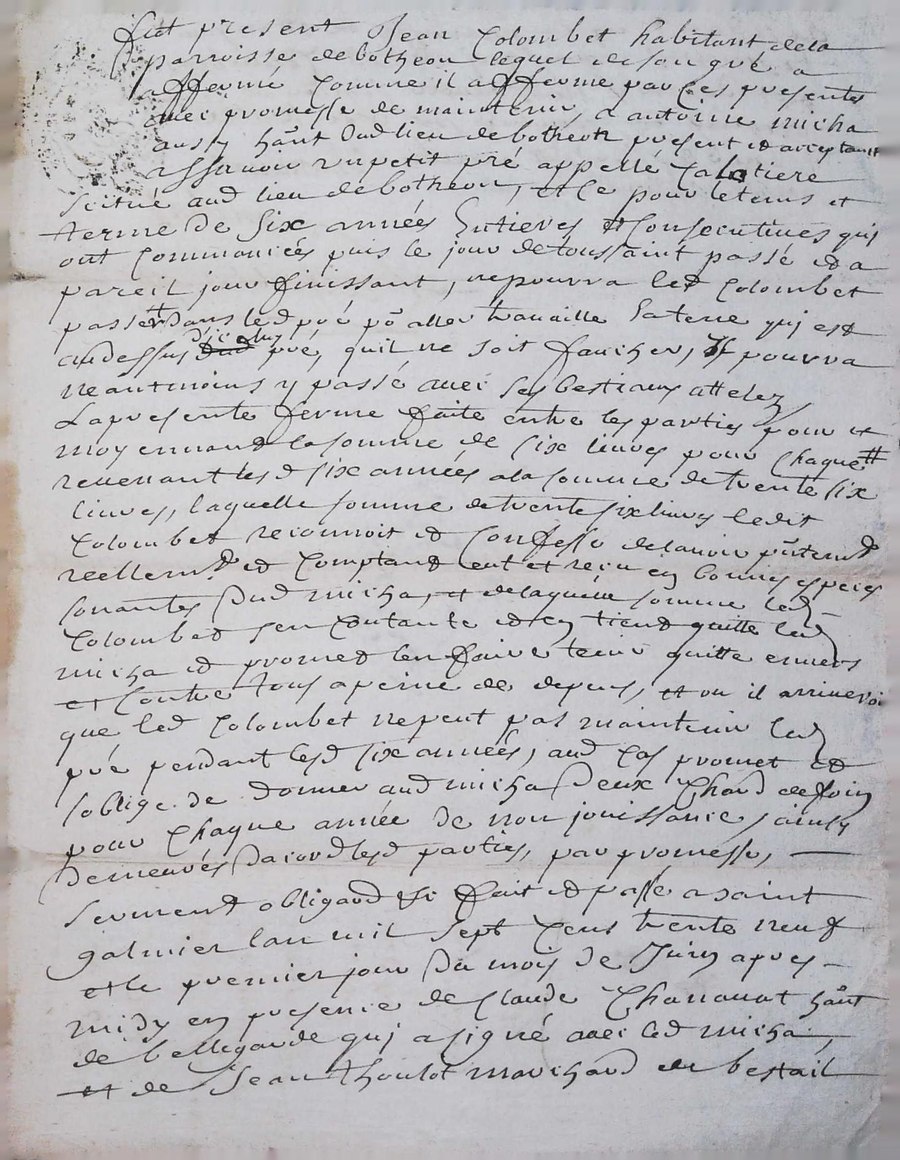 fut present Jean Colombet habitant de la
parroisse de botheon lequel de son gré a
affermé comme il afferme par ces presentes
avec promesse de maintenir, a antoine micha
aussy hãnt dud lieu de botheon present et acceptant
assavoir un petit pré appellé
scitué aud lieu de botheon, et ce pour le tems et
terme de six années Entieres et Consecutives qui
ont Commancées puis le jour de toussaint passé et a
pareil jour finissant, ne pourra led Colombet
passer dans led pré pr aller travaille la terre qui est
au dessus dud pré, quil ne soit faucher, Il pourra
neantmoins y passé avec ses bestiaux attelez
La presente ferme faite entre les parties pour et
moyennand la somme de six livres pour Chaque
revenant lesd six années a la somme de trente six
livres, laquelle somme de trente six livres ledit
Colombet reconnoit et Confesse de lavoir
reellemt et Comptand eut et reçu en bonnes especes
sonantes dud micha, et de laquelle somme led
Colombet sen Contante et en tiend quitte led
micha et promet len faire tenir quitte envers
et Contre tous a peine de depens, et ou il arriveroi
que led Colombet ne peut pas maintenir led
pré pendant lesd six années, aud Cas promet et
soblige de donner aud micha deux Chard de foin
pour Chaque année de non jouissance, ainsy
demeurés dacord lesd parties, par promesse,
serment obligaõn &c fait et passé a saint
galmier lan mil sept Cens trente neuf
et le premier jour du mois de Juin apres
midy en presence de Claude hãnt
de bellegarde qui a signé avec led micha,
et de Jean thoulot marchand de bestail